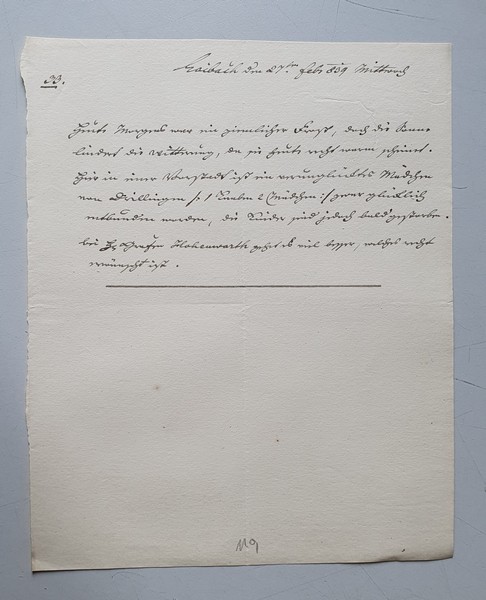 Laibach den 27ten Feb: 839 Mittwoch
33.
Heute Morgens war ein ziemlicher Frost, doch die Sonne
lindert die Witterung, da sie heute recht warm scheinet.
Hier in einer Vorstadt ist ein verunglücktes Mädchen
von Drillingen /: 1 Knaben 2 Mädchen :/ zwar glücklich
entbunden worden, die Kinder sind jedoch bald gestorben.
bei H: Grafen Hohenwarth geht es viel besser, welches recht
erwünscht ist.
119